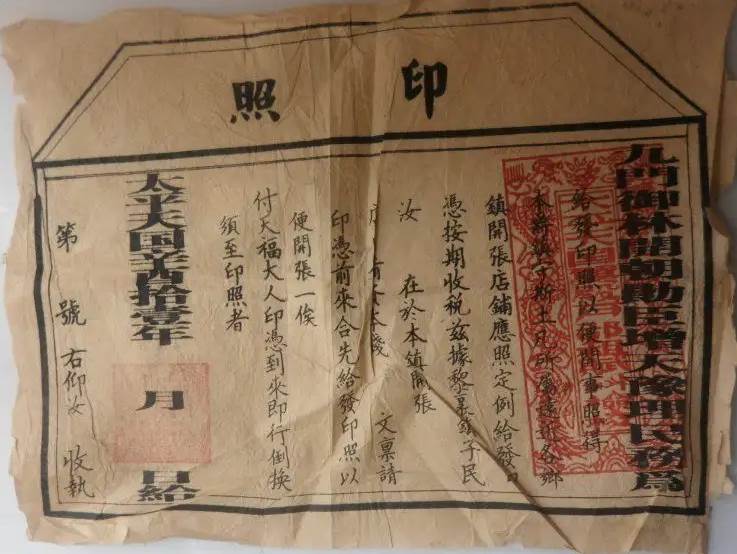 印照
九門御林開朝勳臣增天豫理民務為
給發印照以便開事照得
本爵鎮守斯土凡所屬遠近各鄉
鎮開張店鋪應照定例給發
憑按期收稅茲據黎里鎮子民
汝 在於本鎮開張
本 文稟請
印憑前來合先給發印照以
便開張一俟
付天福大人印憑到來即行倒換
須至印照者
太平天囯辛酉拾壹年 月 日給
第 號 右仰汝 收執